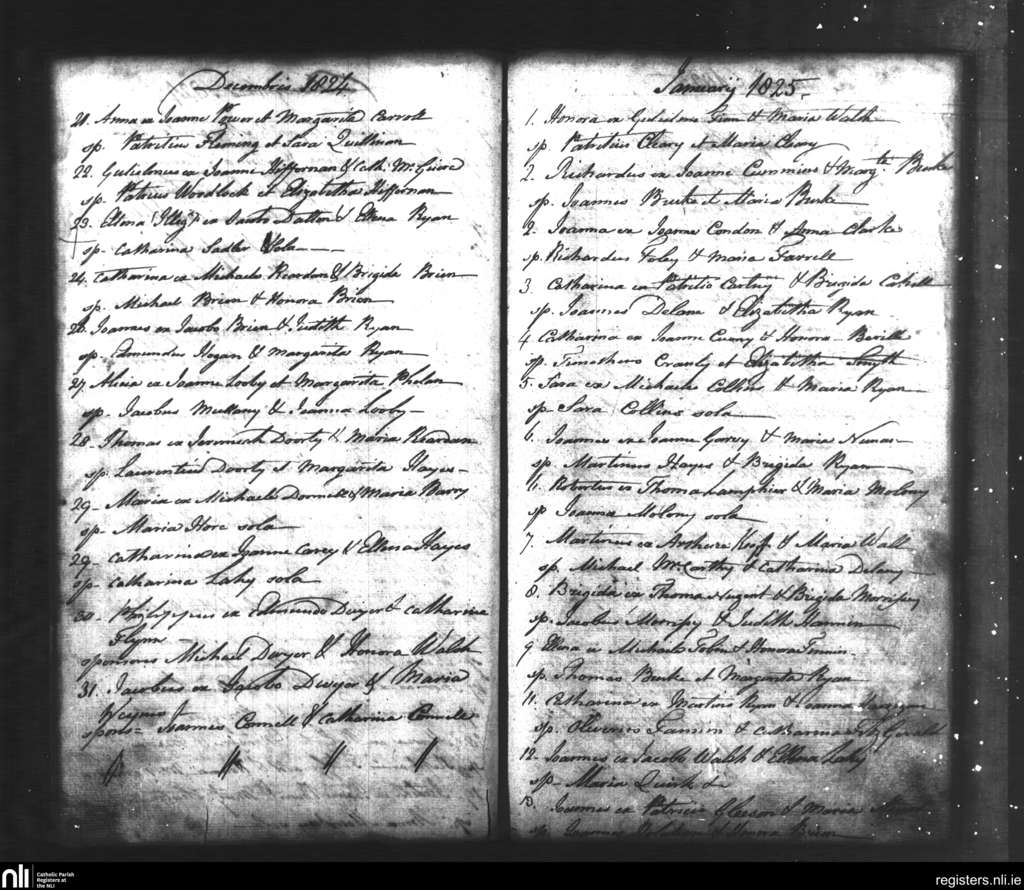 Decembris 1824
21. Anna ex Joanne Power et Margarita Carroll
sp. Patritius Fleming et Sara Quillinan
22. Gulielmus ex Joanne Heffernan & Cath. McGuire
sp. Patricius Woodlock et Elizabetha Heffernan
23. Ellena (Illeg.) ex Jacobo Dalton & Ellena Ryan
sp. Catharina Sadler Sola
24. Catharina ex Michaele Reardon & Brigida Brien
sp. Michael Brien & Honora Brien
26. Joannes ex Jacobo Brien & Judith Ryan
sp. Edmundus Hogan & Margarita Ryan
27. Alicia ex Joanne Looby et Margarita Phelan
sp. Jacobus Mullany & Joanna Looby
28. Thomas ex Jeremiah Doorty & Maria Reardan
sp. Laurentius Doorty et Margarita Hayes
29. Maria ex Michaele & Maria Barry
sp. Maria Hore sola
29. Catharina ex Joanne Carey & Ellena Hayes
sp. Catharina Lahy sola
30. Philippus ex Edmundo Dwyer & Catharina
Flynn
sponsores Michael Dwyer & Honora Walsh
31. Jacobus ex Jacobo Dwyer & Maria
spons= Joannes Connell & Catharina Connell
January 1825.
1. Honora ex Gulielmo & Maria Walsh
sp. Patritius Cleary et Maria Cleary
2. Richardus ex Joanne Cummins & Margte Burke
sp. Joannes Burke et Maria Burke
2. Joanna ex Joanne Condon & Anna Clarke
sp. Richardus Foley & Maria Farrell
3. Catharina ex Patritio & Brigida
sp. Joannes Delane & Elizabetha Ryan
4. Catharina ex Joanne & Honora
sp. Timotheus et Elizabetha Smyth
5. Sara ex Michaele Collins & Maria Ryan
sp. Sara Collins sola
6. Joannes ex Joanne & Maria
sp. Martinus Hayes & Brigida Ryan
11. Robertus ex Thoma Lamphier & Maria Molony
sp Joanna Molony sola
7. Martinus ex Keeffe & Maria Wall
sp. Michael McCarthy & Catharina Delany
8. Brigida ex Thoma Nugent & Brigida Morrissy
sp. Jacobus Morrissy & Judith
9 Ellena ex Michaele Tobin & Honora
sp. Thomas Burke et Margarita Ryan
11. Catharina ex Martino Ryan & Joanna
sp. Oliverus Fannin &
12. Joannes ex Jacobo Walsh & Ellena Lahy
sp. Maria Quirk
Joannes ex Patricio Gleeson & Maria
sp. Joannes & Honora Brien
nli
Catholic Parish
Registers at
the NLI
registers.nli.ie